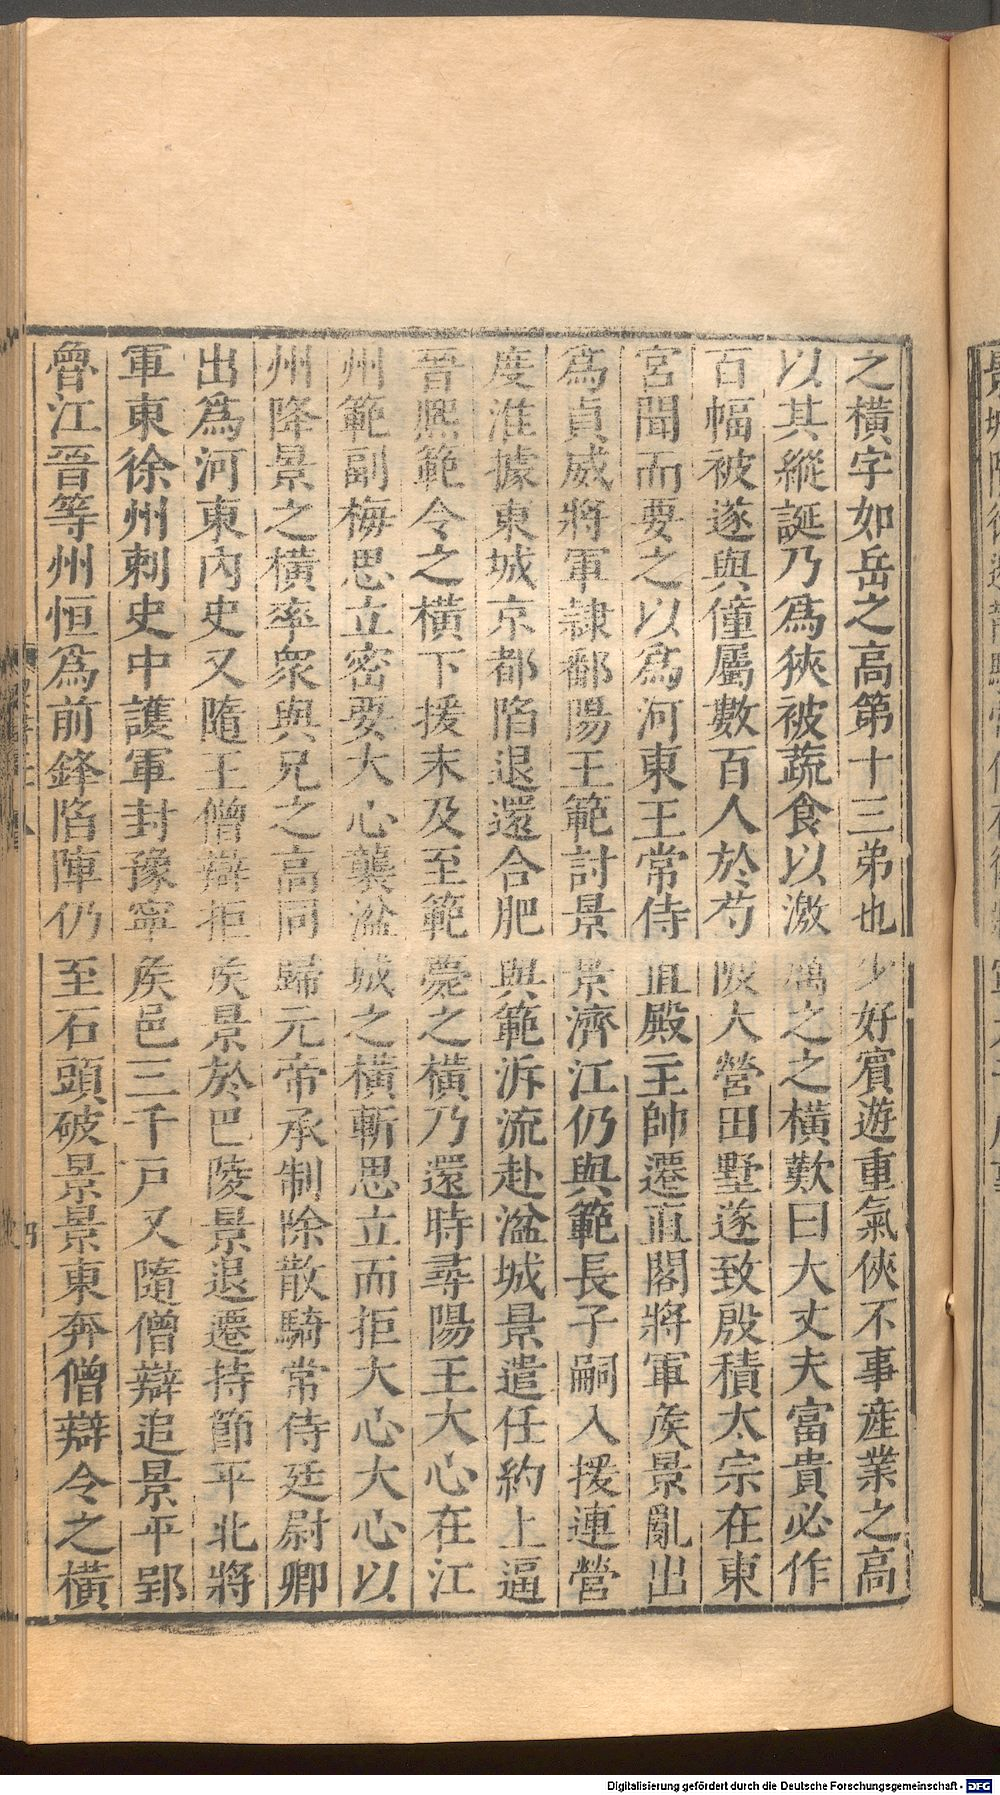 之橫字如岳之高第十三弟也少好賓遊重氣俠不事産業之高
以其縱誕乃爲狹被蔬食以激厲之之橫歎曰大丈夫富貴必作
百幅被遂與僮屬數百人於芍陂大營田墅遂致殷積太宗在東
宮聞而要之以爲河東王常侍直殿主帥遷直閣將軍矦景亂出
爲貞威將軍隷鄱陽王範討景景濟江仍與範長子嗣入援連營
度淮據東城京都陷退還合肥與範泝流赴湓城景遣任約上逼
晉熙範令之橫下援未及至範薨之橫乃還時尋陽王大心在江
州範副梅思立密要大心襲湓城之橫斬思立而拒大心大心以
州降景之橫率衆與兄之高同歸元帝承制除散騎常侍廷尉卿
出爲河東內史又隨王僧辯拒矦景於巴陵景退遷持節平北將
軍東徐州刺史中護軍封豫寧矦邑三千戸又隨僧辯追景平郢
魯江晉等州恒爲前鋒陷陣仍至石頭破景景東奔僧辯令之橫
Digitalisierung gefördert durch die Deutsche Forschungsgemeinschaft - DFG